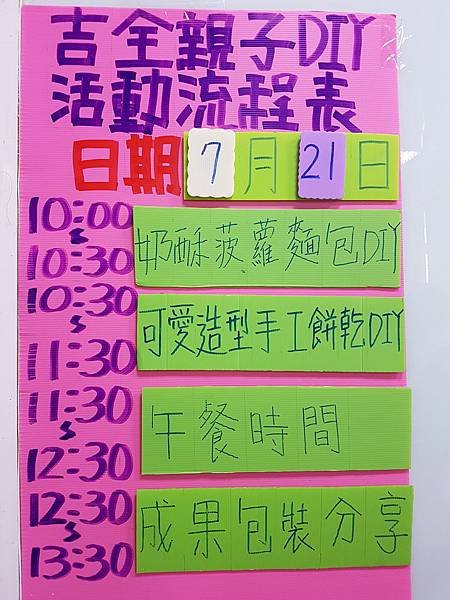 吉全親子DIY
活動流程表
日期 7月21日
10:00
~
10:30
奶酥菠蘿麵包DIY
10:30
~
11:30
可愛造型手工餅乾DIY
11:30
~
12:30
午餐時間
12:30
~
13:30
成果包裝分享